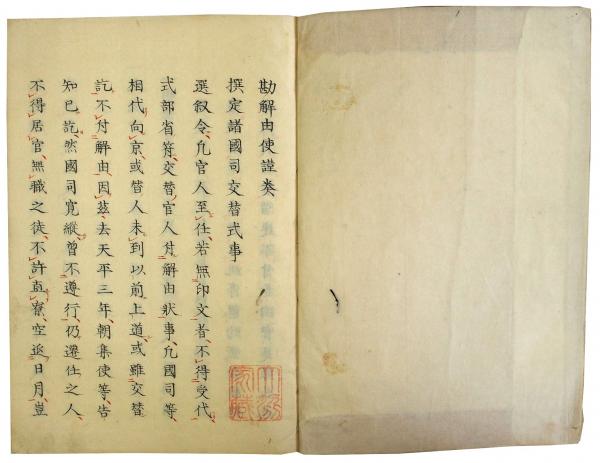 勘解由使謹奏
撰定諸國司交替式事
選叙令、凡官人至任、若無印文者、不得受代
式部省苻、交替官人付解由狀事、凡國司等
相代向京、或替人未到以前上道、或雖交替
訖、不付解由、因茲、去天平三年、朝集使等告
知已訖、然國司寛縦、曾不遵行、仍遷任之人、
不得居官、無職之徒、不許直寮、空延日月、豈